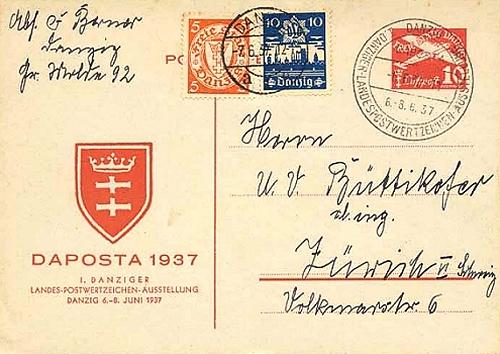 Abs. F Berner
Danzig
Gr. Molde 92
5
Freie Stadt
Danzig
10 10
Danzig
DANZIG
-7.6.37.12
a
DANZIG
I. DANZIGER LANDESPOSTWERTZEICHEN-AUSSTELLUNG
6.-8.6.37
Freie Stadt Danzig
Luftpost 10
PO
Herrn
U. V. Büttikofer
dl. ing.
Zürich II Schweiz
Volkmarstr. 6
DAPOSTA 1937
I. DANZIGER
LANDES-POSTWERTZEICHEN-AUSSTELLUNG
DANZIG 6.–8. JUNI 1937